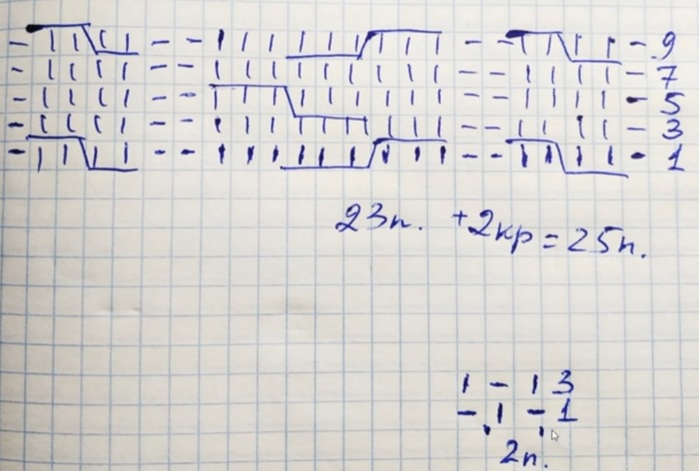 - | | | | - - | | | | | | | | | - - | | | | - 9
- | | | | - - | | | | | | | | | - - | | | | - 7
- | | | | - - | | | | | | | | | - - | | | | - 5
- | | | | - - | | | | | | | | | - - | | | | - 3
- | | | | - - | | | | | | | | | - - | | | | - 1
23п. +2кр=25п.
| - | 3
- | - 1
2п.